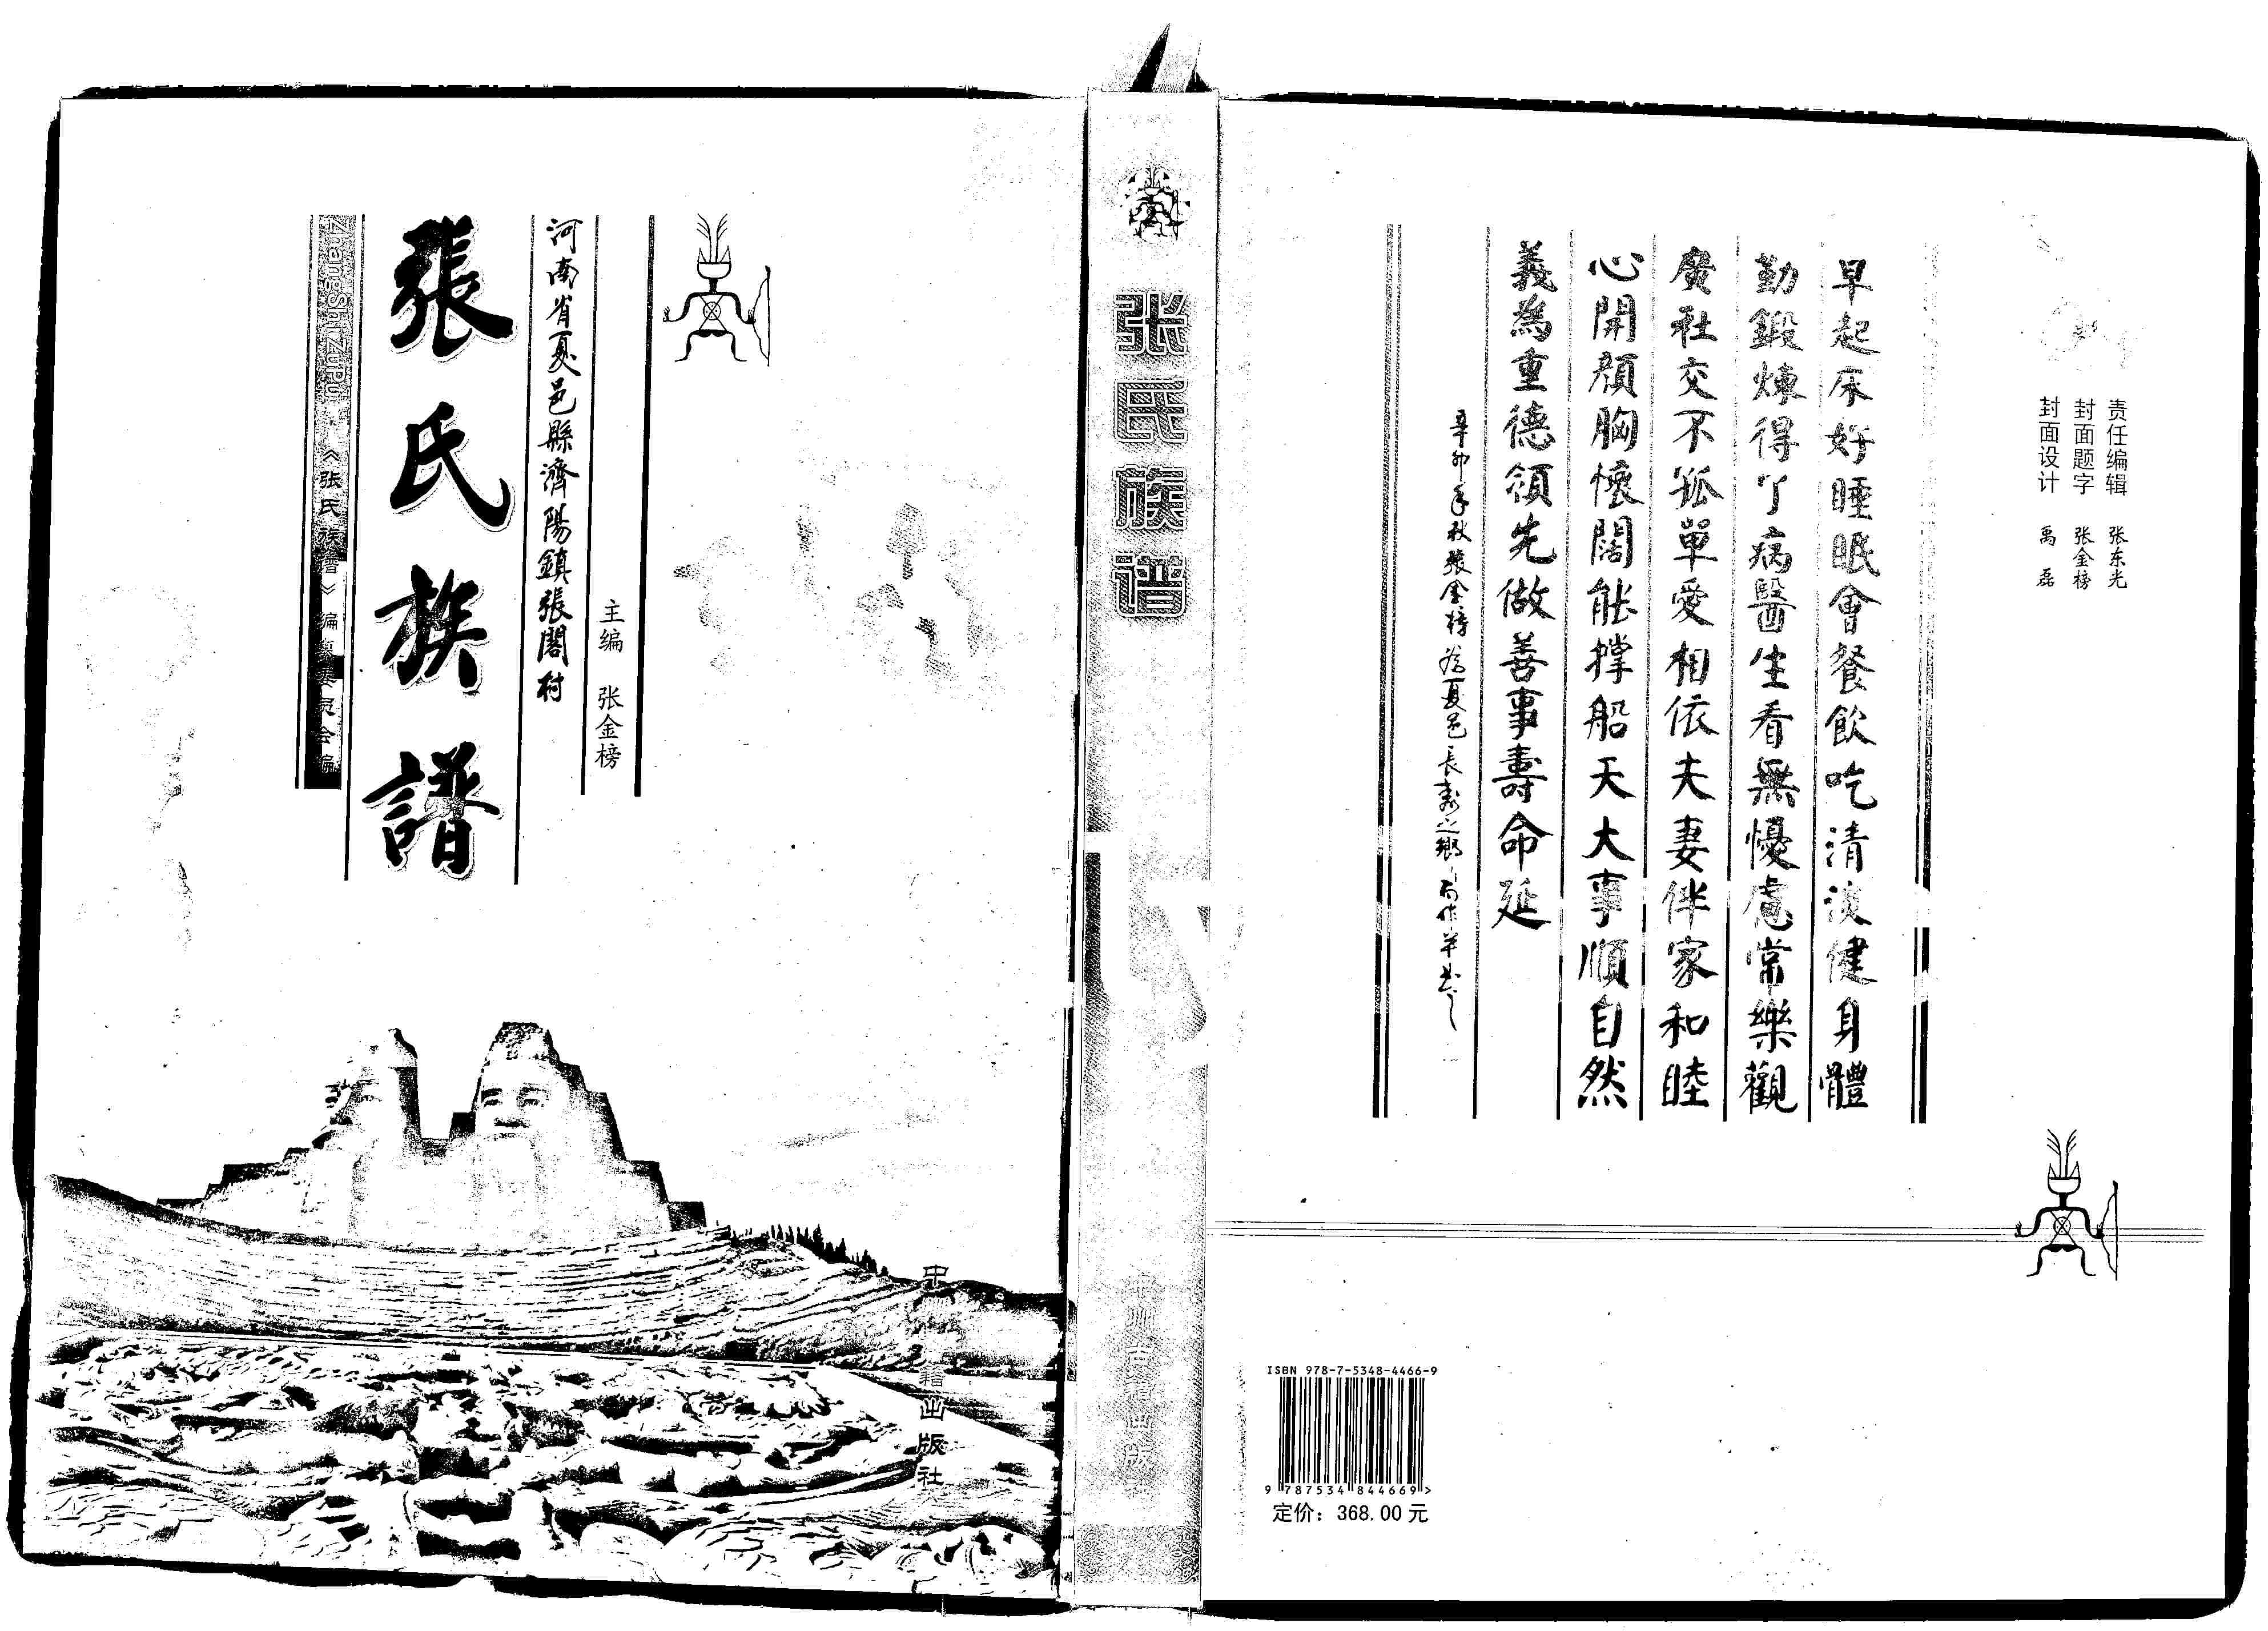 主编 张金榜
河南省夏邑縣濟陽鎮張閣村
張氏族譜
ZhangShi ZuPu
《张氏族谱》编纂委员会编
中州古籍出版社
张氏族谱
中州古籍出版社
责任编辑 张东光
封面题字 张金榜
封面设计 禹磊
早起床好睡眠會餐飲吃清淡健身體
勤鍛煉得了病醫生看無憂慮常樂觀
廣社交不孤單愛相依夫妻伴家和睦
心開顏胸懷闊能撑船天大事順自然
義為重德領先做善事壽命延
辛卯年秋張金榜於夏邑長壽之鄉
ISBN 978-7-5348-4466-9
9 787534 844669 >
定价：368.00 元